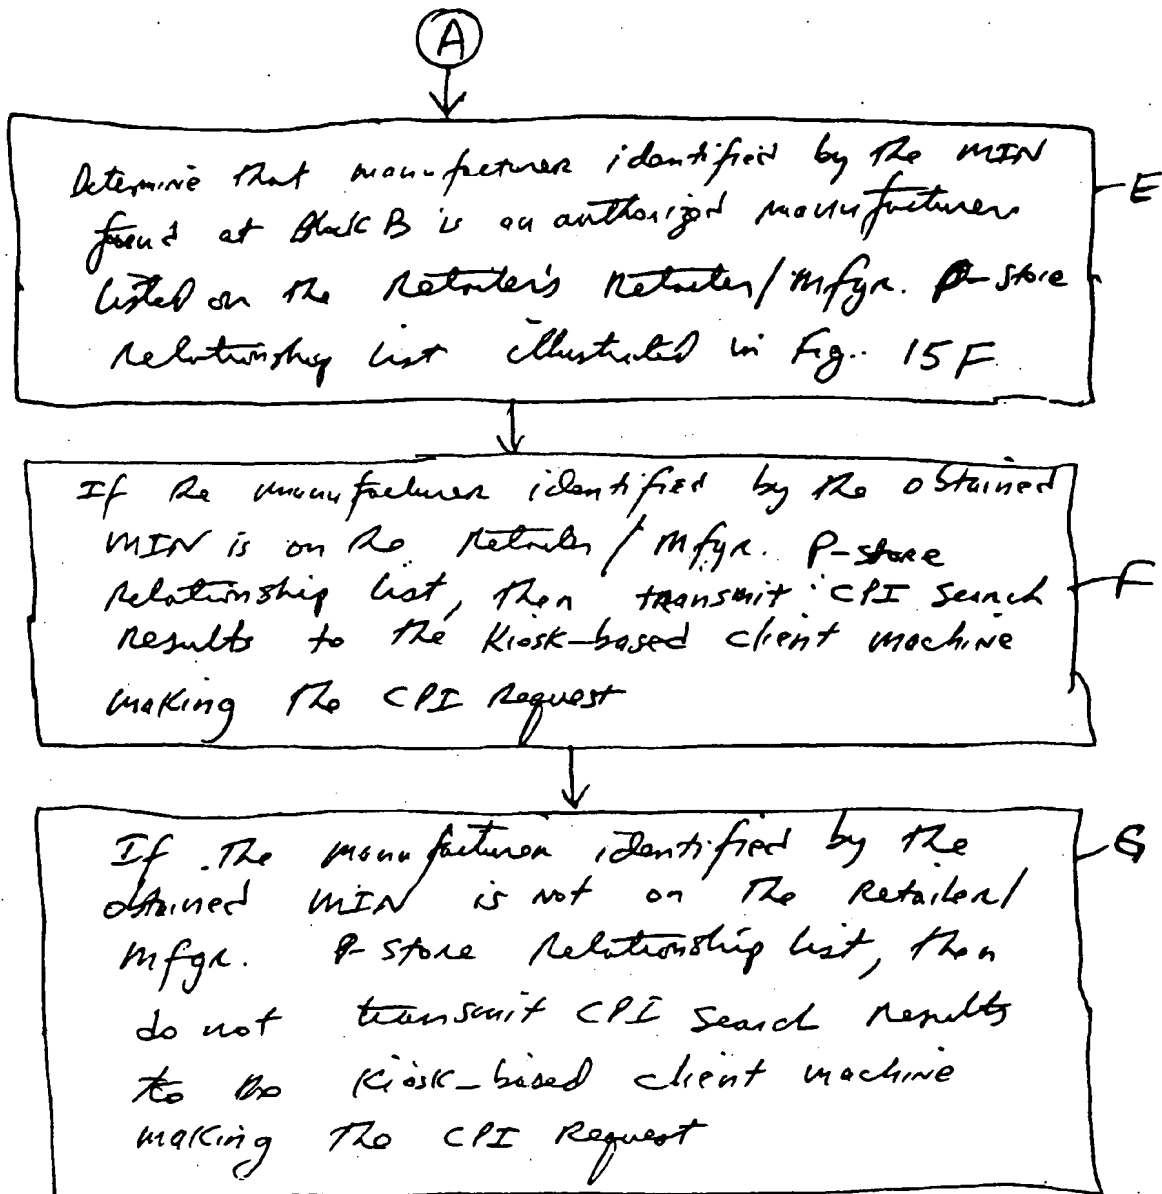 A
Determine that manufacturer identified by the MIN
found at Block B is an authorized manufacturer
listed on the Retailer's Retailer/Mfgr. P-store
relationship list illustrated in Fig. 15F
E
If the manufacturer identified by the obtained
MIN is on the Retailer/Mfgr. P-store
Relationship list, then transmit CPI search
Results to the Kiosk-based client machine
making the CPI Request
F
If the manufacturer identified by the
obtained MIN is not on the Retailer/
Mfgr. P-store Relationship list, then
do not transmit CPI search Results
to the Kiosk-based client machine
making the CPI Request
G